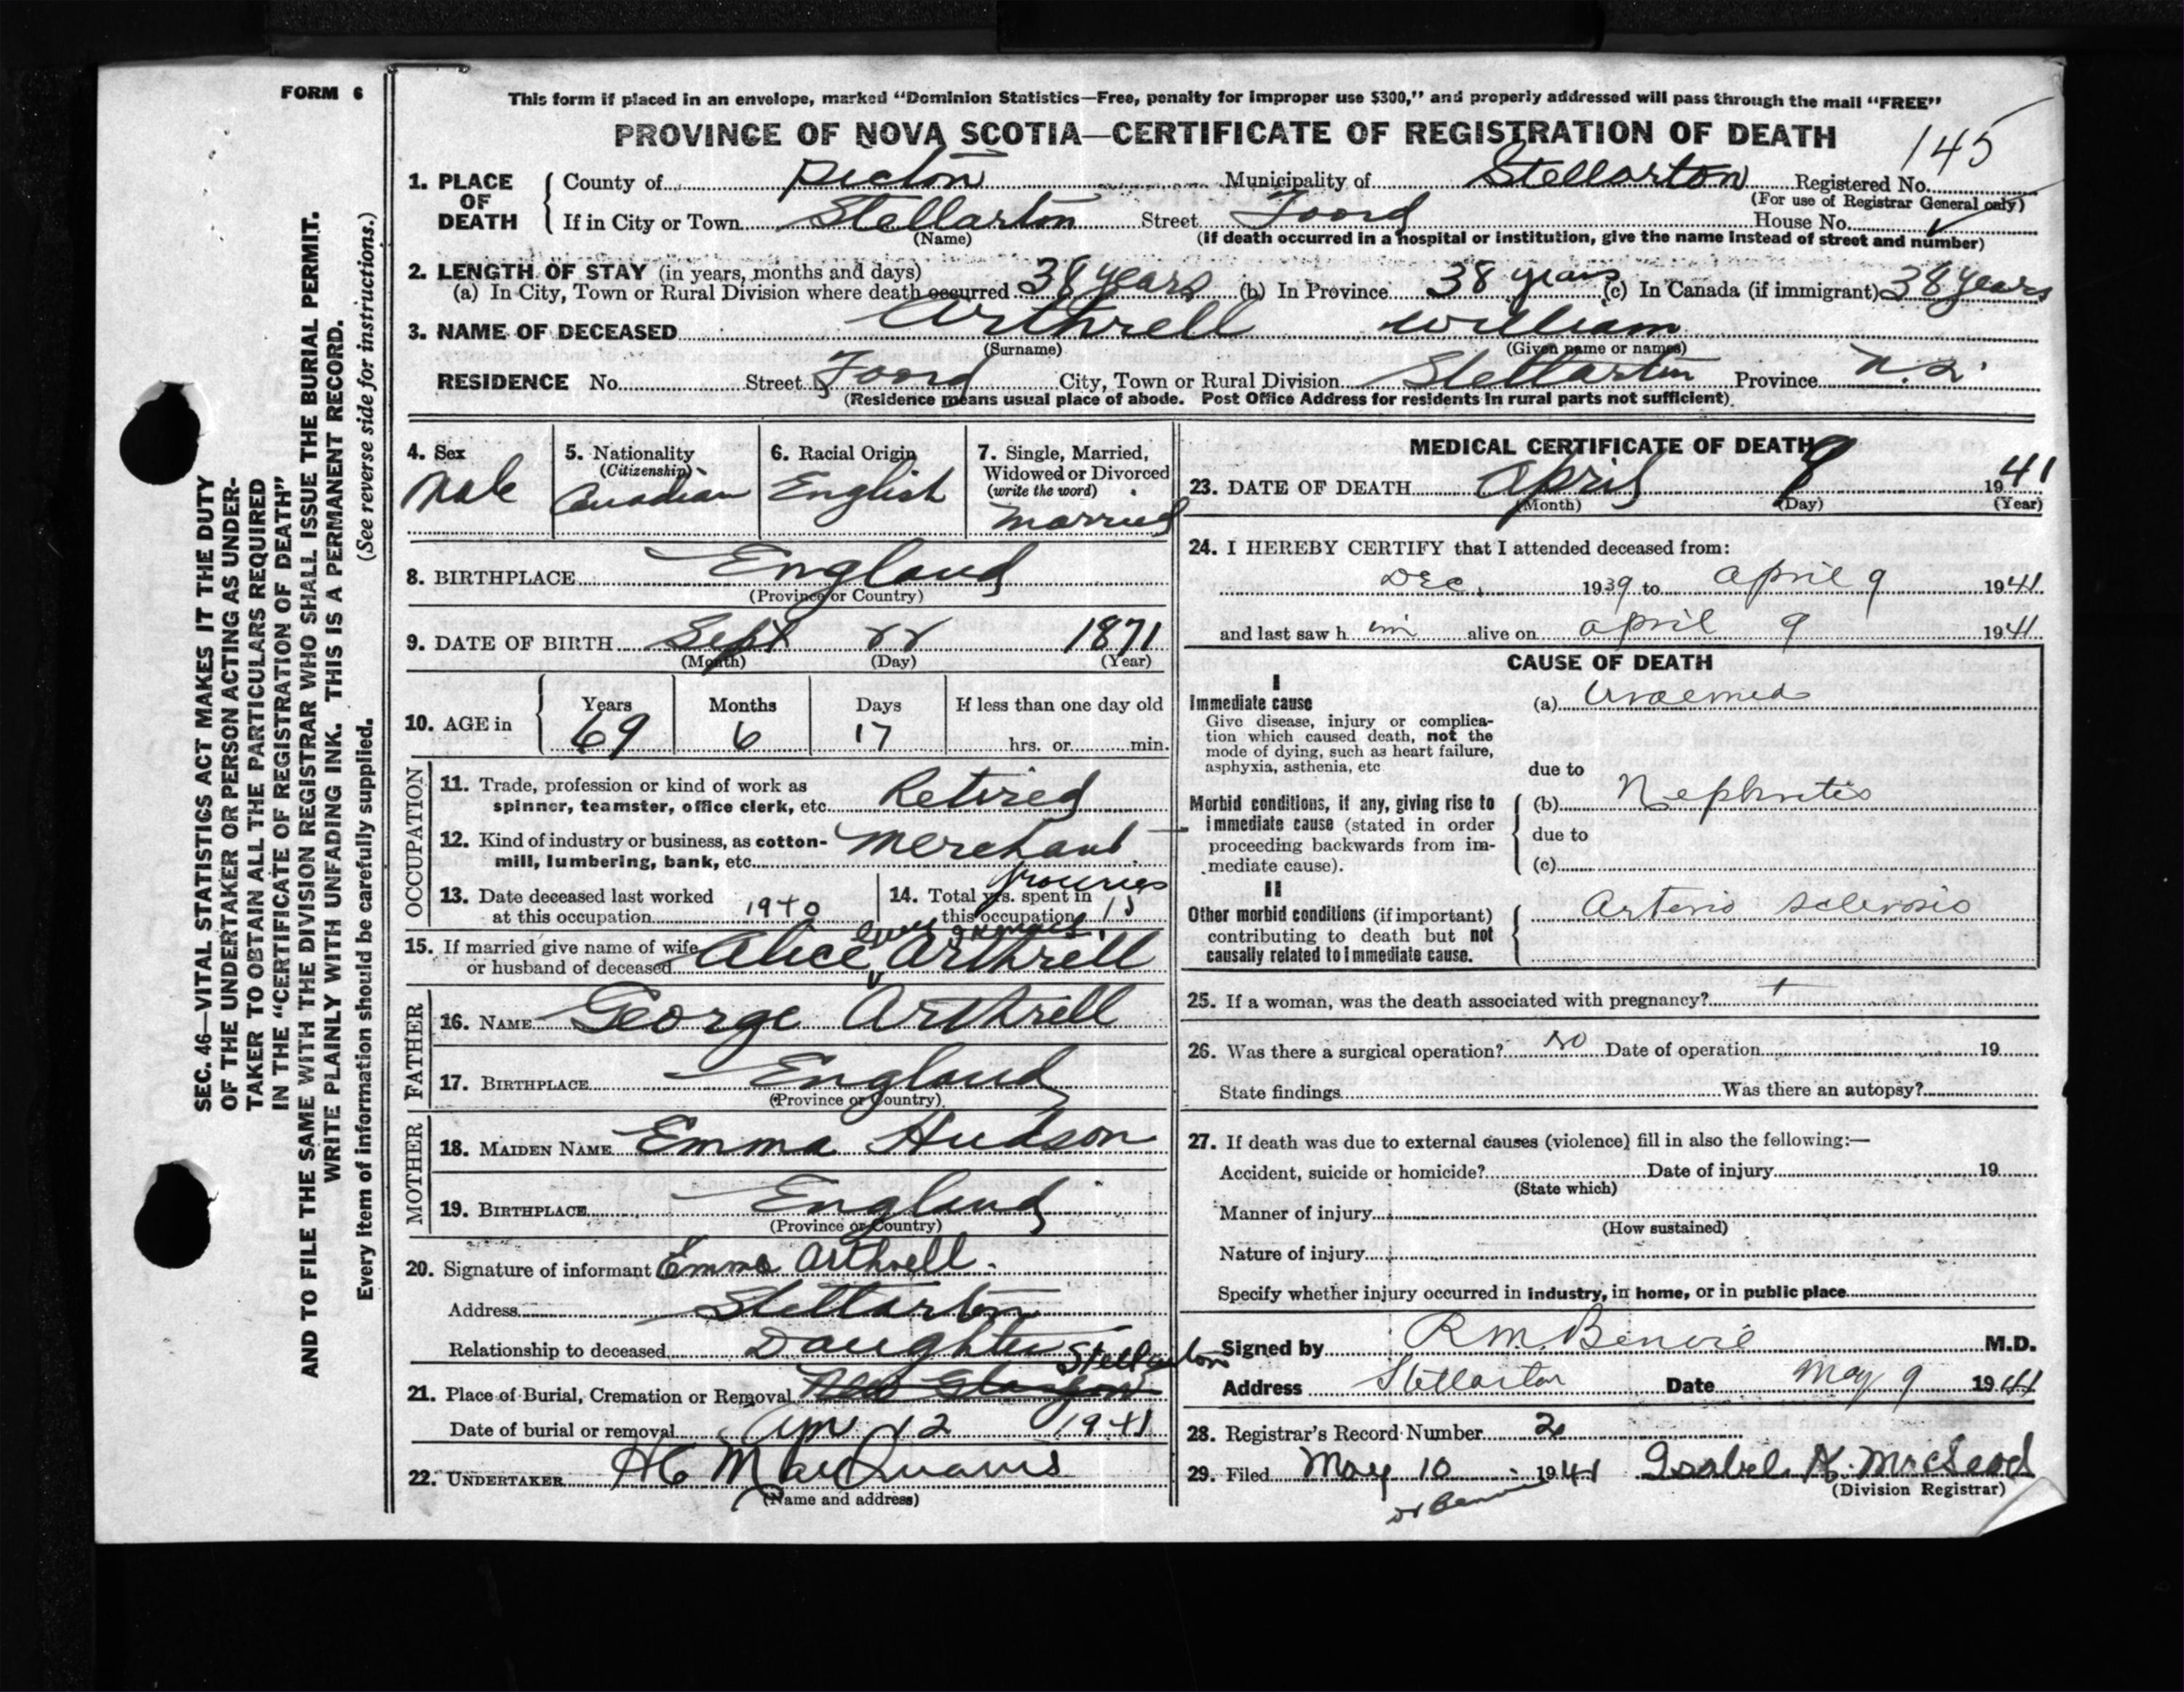 FORM 6
SEC. 46—VITAL STATISTICS ACT MAKES IT THE DUTY
OF THE UNDERTAKER OR PERSON ACTING AS UNDER-
TAKER TO OBTAIN ALL THE PARTICULARS REQUIRED
IN THE "CERTIFICATE OF REGISTRATION OF DEATH"
AND TO FILE THE SAME WITH THE DIVISION REGISTRAR WHO SHALL ISSUE THE BURIAL PERMIT.
WRITE PLAINLY WITH UNFADING INK. THIS IS A PERMANENT RECORD.
Every item of information should be carefully supplied. (See reverse side for instructions.)
This form if placed in an envelope, marked "Dominion Statistics—Free, penalty for improper use $300," and properly addressed will pass through the mail "FREE"
PROVINCE OF NOVA SCOTIA—CERTIFICATE OF REGISTRATION OF DEATH
145
1. PLACE OF DEATH County of Pictou Municipality of Stellarton Registered No.
(For use of Registrar General only)
If in City or Town Stellarton Street Foord House No.
(Name) (If death occurred in a hospital or institution, give the name instead of street and number)
2. LENGTH OF STAY (in years, months and days)
(a) In City, Town or Rural Division where death occurred 38 years (b) In Province 38 years (c) In Canada (if immigrant) 38 years
3. NAME OF DECEASED Arthrell William
(Surname) (Given name or names)
RESIDENCE No. Street Foord City, Town or Rural Division Stellarton Province N.S.
(Residence means usual place of abode. Post Office Address for residents in rural parts not sufficient)
4. Sex Male
5. Nationality (Citizenship) Canadian
6. Racial Origin English
7. Single, Married, Widowed or Divorced (write the word) Married
8. BIRTHPLACE England
(Province or Country)
9. DATE OF BIRTH Sept 22 1871
(Month) (Day) (Year)
10. AGE in Years 69 Months 6 Days 17 If less than one day old hrs. or min.
OCCUPATION
11. Trade, profession or kind of work as
spinner, teamster, office clerk, etc. Retired
12. Kind of industry or business, as cotton-
mill, lumbering, bank, etc. Merchant
groceries
13. Date deceased last worked
at this occupation 1940
14. Total yrs. spent in
this occupation 15
15. If married give name of wife
or husband of deceased Alice Arthrell
FATHER
16. NAME George Arthrell
17. BIRTHPLACE England
(Province or Country)
MOTHER
18. MAIDEN NAME Emma Hudson
19. BIRTHPLACE England
(Province or Country)
20. Signature of informant Emma Arthrell.
Address Stellarton
Relationship to deceased Daughter
21. Place of Burial, Cremation or Removal New Glasgow Stellarton
Date of burial or removal Apr 12 1941
22. UNDERTAKER
(Name and address)
MEDICAL CERTIFICATE OF DEATH
23. DATE OF DEATH April 9 1941
(Month) (Day) (Year)
24. I HEREBY CERTIFY that I attended deceased from:
Dec. 1939 to April 9 1941
and last saw him alive on April 9 1941
CAUSE OF DEATH
I
Immediate cause
Give disease, injury or complica-
tion which caused death, not the
mode of dying, such as heart failure,
asphyxia, asthenia, etc
(a) Uraemia
due to
Morbid conditions, if any, giving rise to
immediate cause (stated in order
proceeding backwards from im-
mediate cause).
(b) Nephritis
due to
(c)
II
Other morbid conditions (if important)
contributing to death but not
causally related to immediate cause.
Arterio sclerosis
25. If a woman, was the death associated with pregnancy?
26. Was there a surgical operation? no Date of operation 19
State findings Was there an autopsy?
27. If death was due to external causes (violence) fill in also the following:—
Accident, suicide or homicide? Date of injury 19
(State which)
Manner of injury
(How sustained)
Nature of injury
Specify whether injury occurred in industry, in home, or in public place
Signed by R.M. Benvie M.D.
Address Stellarton Date May 9 1941
28. Registrar's Record Number 2
29. Filed May 10 1941 Isabel H. MacLeod
(Division Registrar)
Dr Benvie